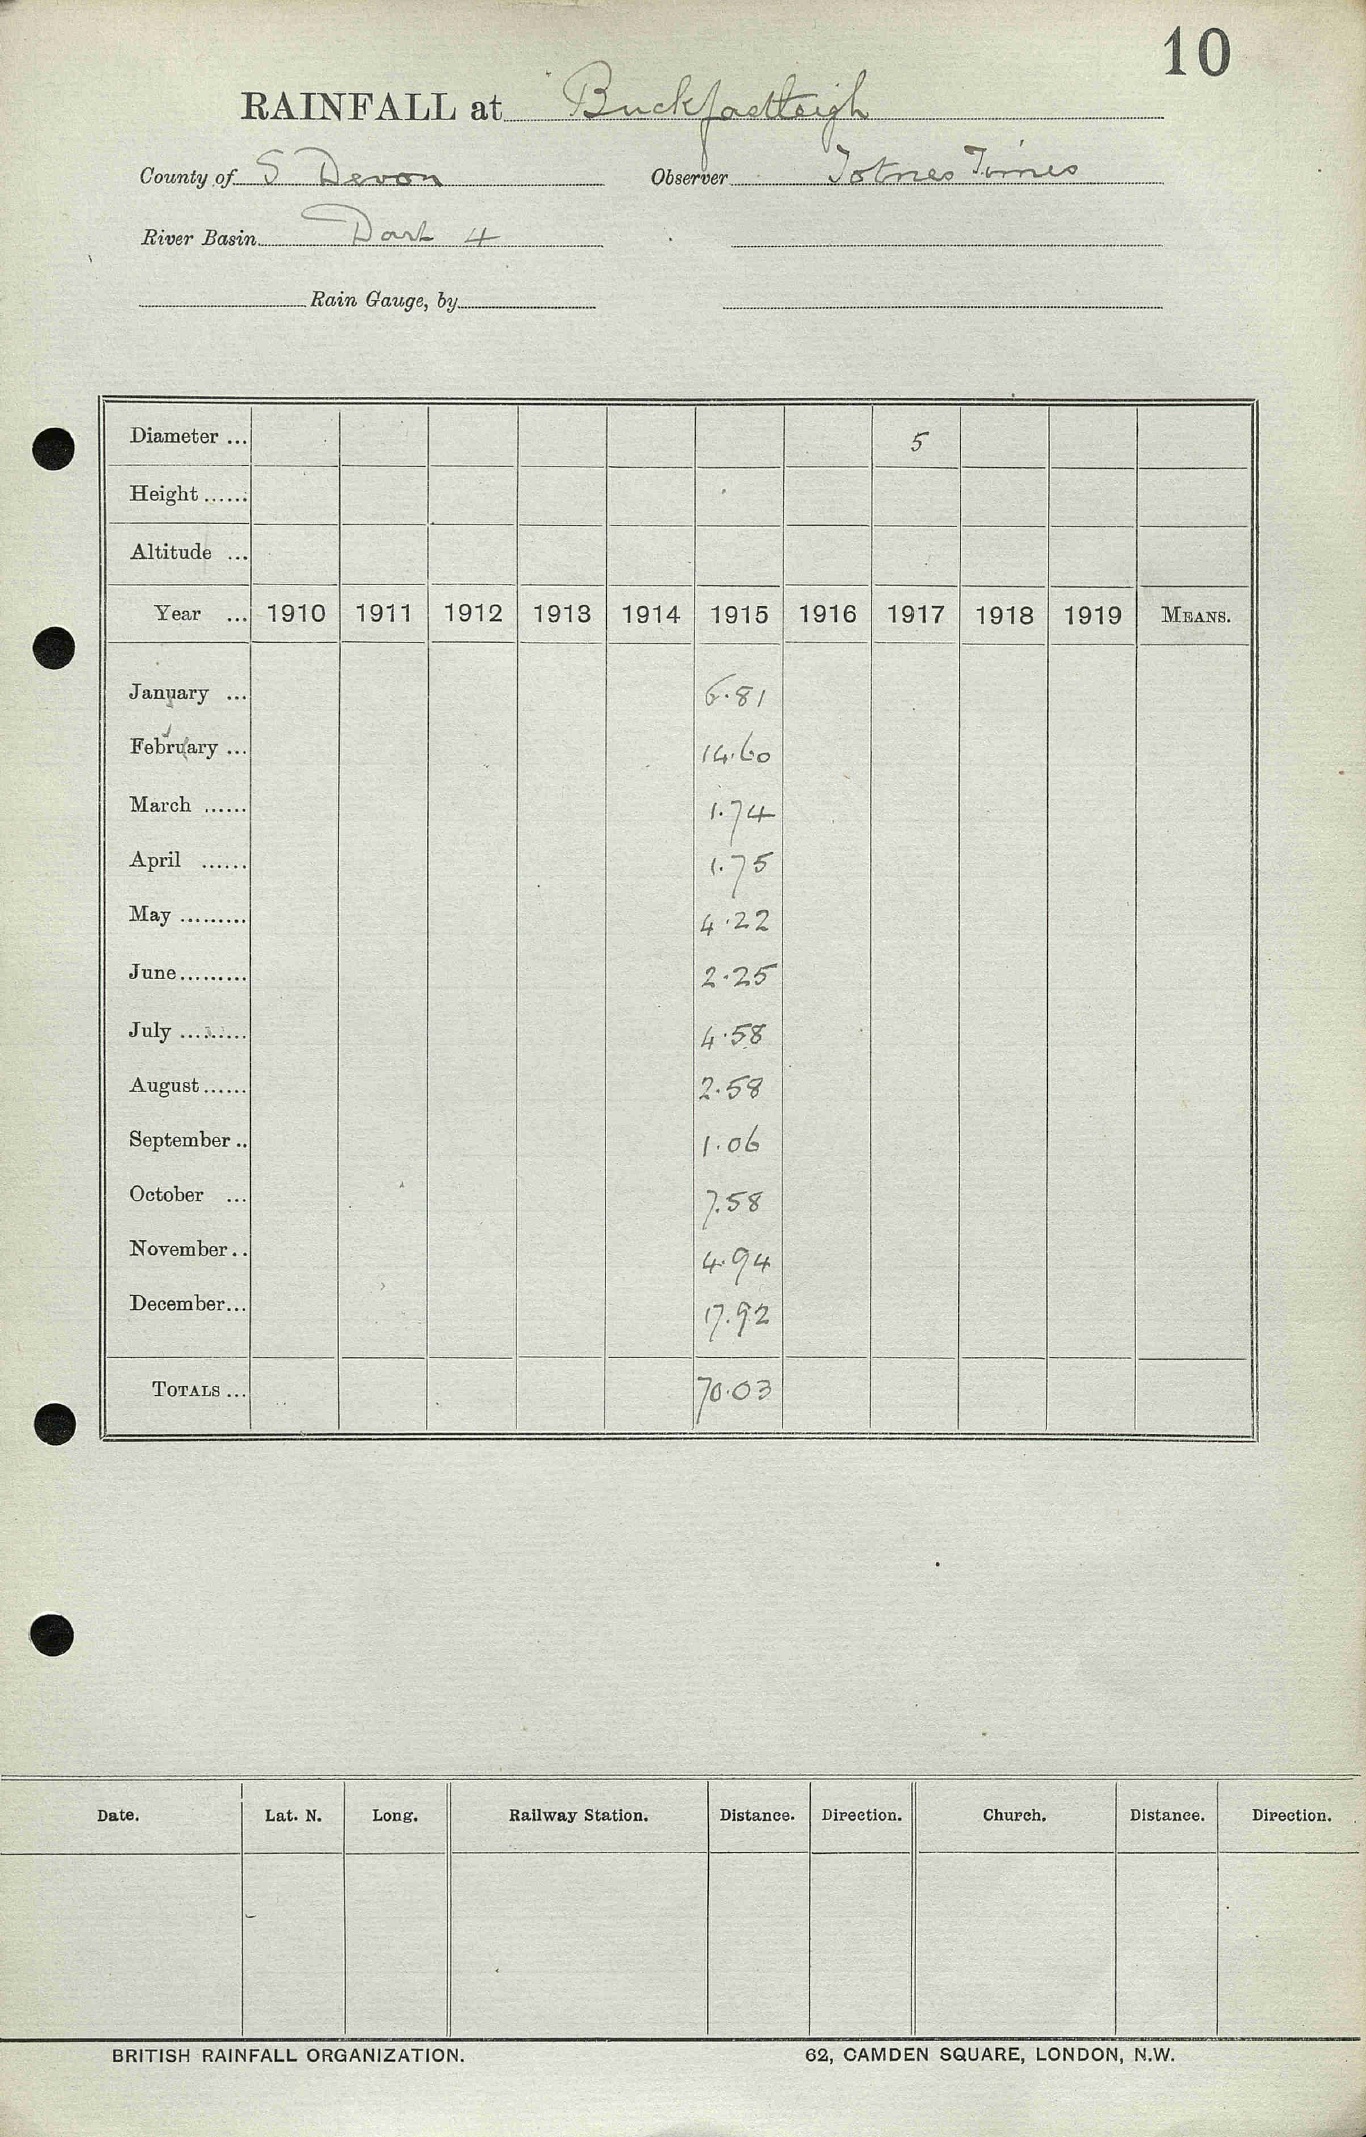 10
RAINFALL at Buckfastleigh
County of S Devon Observer Totnes Times
River Basin Dart 4
Rain Gauge, by
Diameter ... 5
Height ......
Altitude ...
Year ... 1910 1911 1912 1913 1914 1915 1916 1917 1918 1919 MEANS.
January ... 6.81
February ... 14.60
March ...... 1.74
April ...... 1.75
May ......... 4.22
June ......... 2.25
July ......... 4.58
August ...... 2.58
September .. 1.06
October ... 7.58
November .. 4.94
December ... 17.92
TOTALS ... 70.03
Date. Lat. N. Long. Railway Station. Distance. Direction. Church. Distance. Direction.
BRITISH RAINFALL ORGANIZATION. 62, CAMDEN SQUARE, LONDON, N.W.